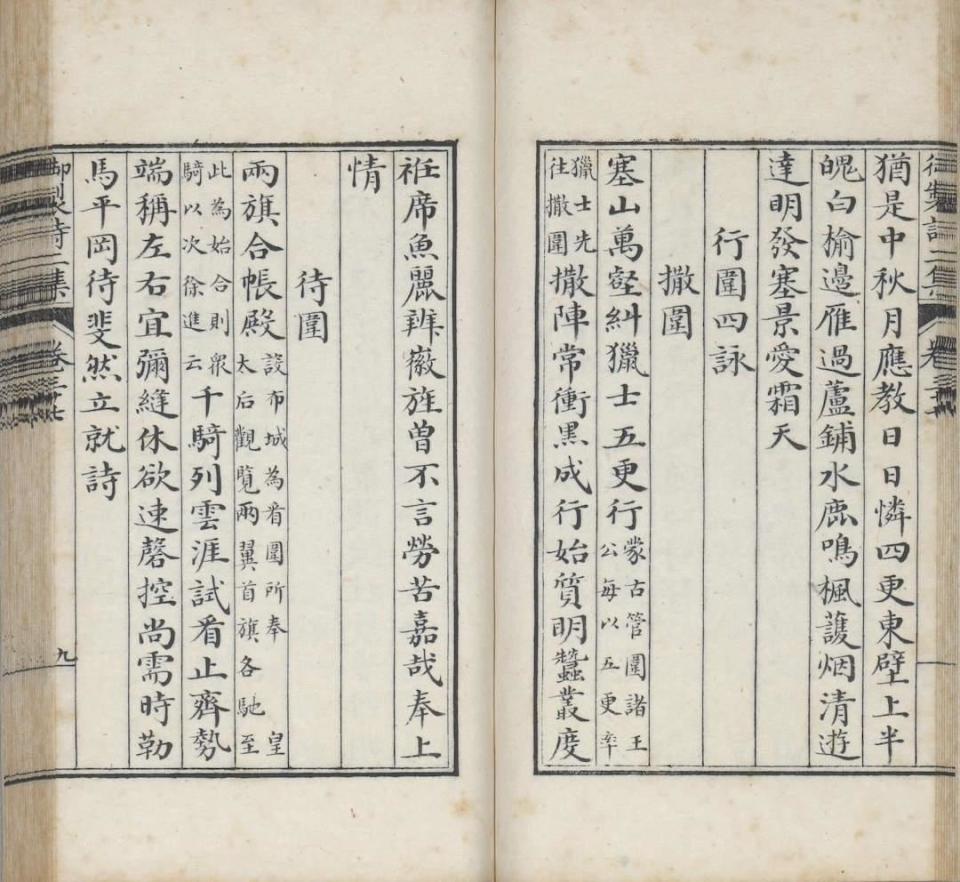 猶是中秋月應教日日憐四更東壁上半
魄白榆邊雁過蘆鋪水鹿鳴楓䕶烟清遊
達明發塞景愛霜天
行圍四詠
撒圍
塞山萬壑糾獵士五更行蒙古管圍諸王公每以五更率
獵士先往撒圍撒陣常衝黑成行始質明蠶叢度
袵席魚麗辨徽旌曾不言勞苦嘉哉奉上
情
待圍
兩旗合帳殿設布城為看圍所奉皇太后觀覽兩翼首旗各馳至
此為始合則衆騎以次徐進云千騎列雲涯試看止齊勢
端稱左右宜彌縫休欲速磬控尚需時勒
馬平岡待斐然立就詩
御製詩二集 卷三十七 九